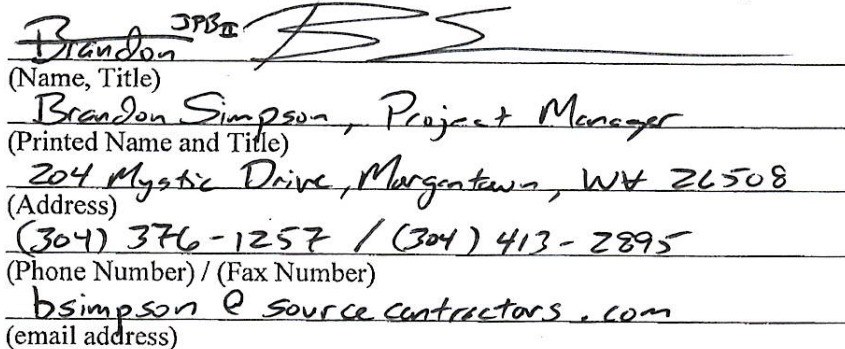 Brandon JPB II
(Name, Title)
Brandon Simpson, Project Manager
(Printed Name and Title)
204 Mystic Drive, Morgantown, WV 26508
(Address)
(304) 376-1257 / (304) 413-2895
(Phone Number) / (Fax Number)
bsimpson@sourcecontractors.com
(email address)